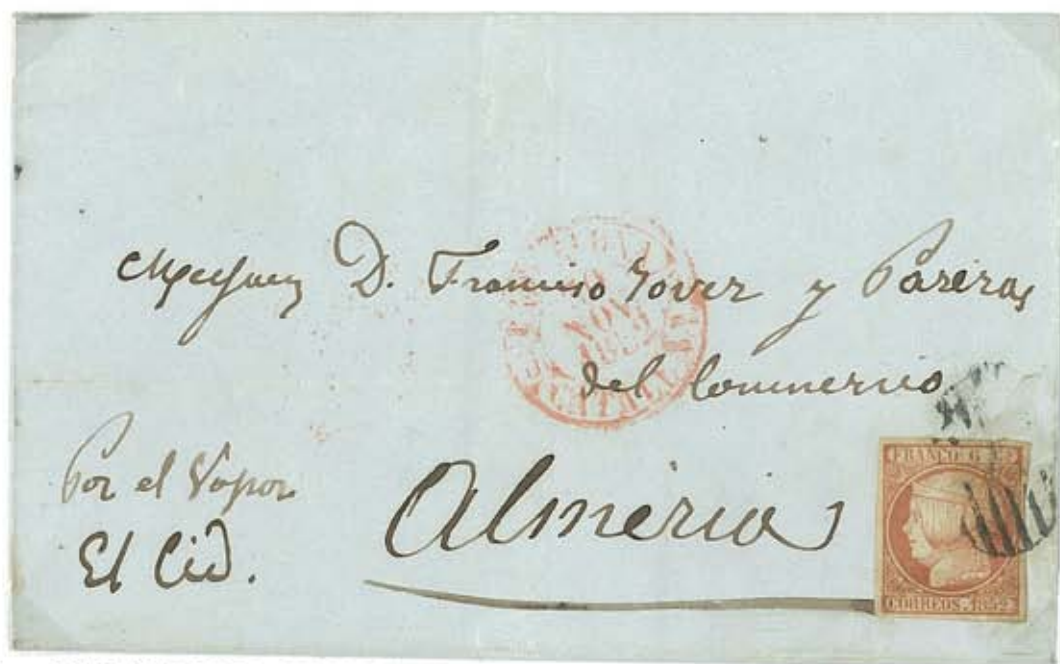 D. Francisco Jover y Pareras
del Commercio
Por el Vapor
El Cid.
Almeria
NOV
FRANCO 6 Cs
CORREOS 1852